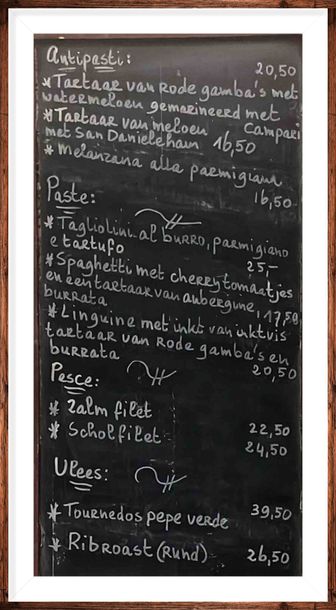 Antipasti:
20,50
* Tartaar van Rode gamba's met
watermeloen gemarineerd met
Campari
* Tartaar van meloen
met San Danieleham 16,50
* Melanzana alla parmigiana
16,50
Paste:
* Tagliolini al burro, parmigiano
e tartufo 25,-
* Spaghetti met cherrytomaatjes
en een tartaar van aubergine, 17,50
burrata
* Linguine met inkt van inktvis
tartaar van Rode gamba's en
burrata 20,50
Pesce:
* Zalm filet 22,50
* Scholfilet 24,50
Vlees:
* Tournedos pepe verde 39,50
* Ribroast (Rund) 26,50